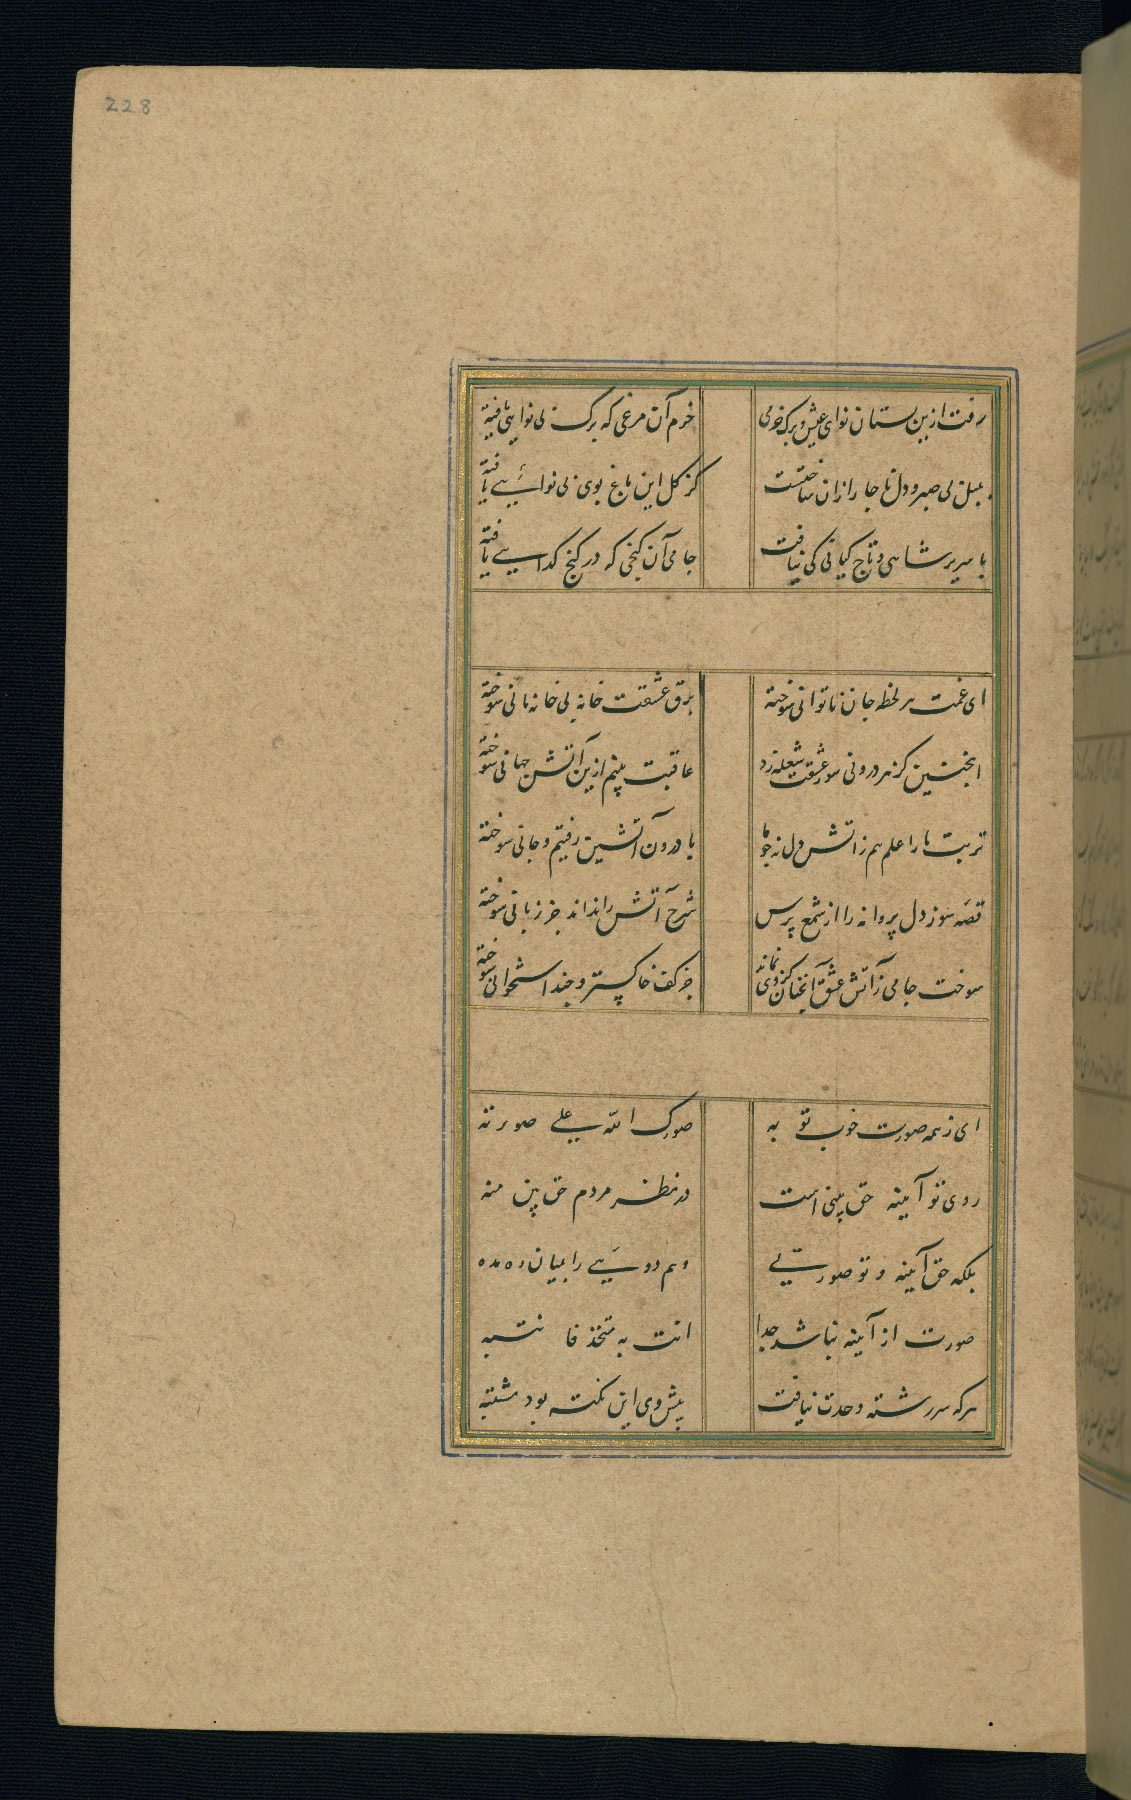 228
رفت ازین بستان نوای عیش و برگ خرمی خرم آن مرغی که برگ بی نوایی یافته
بلبل بی صبر و دل با جا رازان ساختست کز گل این باغ بوی بی نوائیی یافته
با سریر شاهی و تاج کیانی کی نیافت جامی آن گنجی که در کنج گدایی یافته
ای غمت هر لحظه جان ناتوانی سوخته برق عشقت خانه بی خانه مانی سوخته
اینچنین کز هر درونی سوز عشقت شعله زد عاقبت بینم ازین آتش جهانی سوخته
تربت ما را علم هم ز آتش دل نه چو ما با درون آتشین رفتیم و جانی سوخته
قصه سوز دل پروانه را از شمع پرس شرح آتش را نداند جز زبانی سوخته
سوخت جامی ز آتش عشق آنچنان کز وی نماند جز کف خاکستر و چند استخوانی سوخته
ای ز همه صورت خوب تو به صورک الله علی صورته
روی تو آیینه حق بینی است در نظر مردم حق بین منه
بلکه حق آیینه و تو صورتی وهم دویی را بمیان ره مده
صورت از آیینه نباشد جدا انت به متحد فانتبه
هرکه سررشته وحدت نیافت پیش وی این نکته بود مشتبه